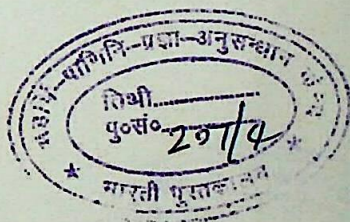 महर्षि-पाणिनि-प्रज्ञा-अनुसन्धान केन्द्र
तिथी..............
पु०सं०..............
297/4
भारती पुस्तकालय